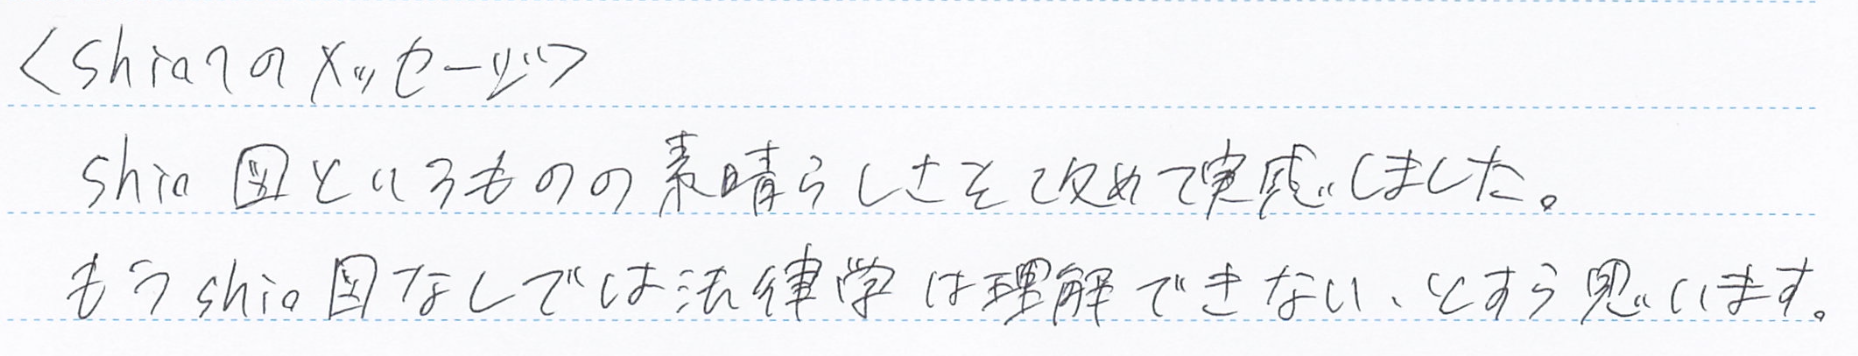 <shioへのメッセージ>
shio図というものの素晴らしさを改めて実感しました。
もうshio図なしでは法律学は理解できない、とすら思います。